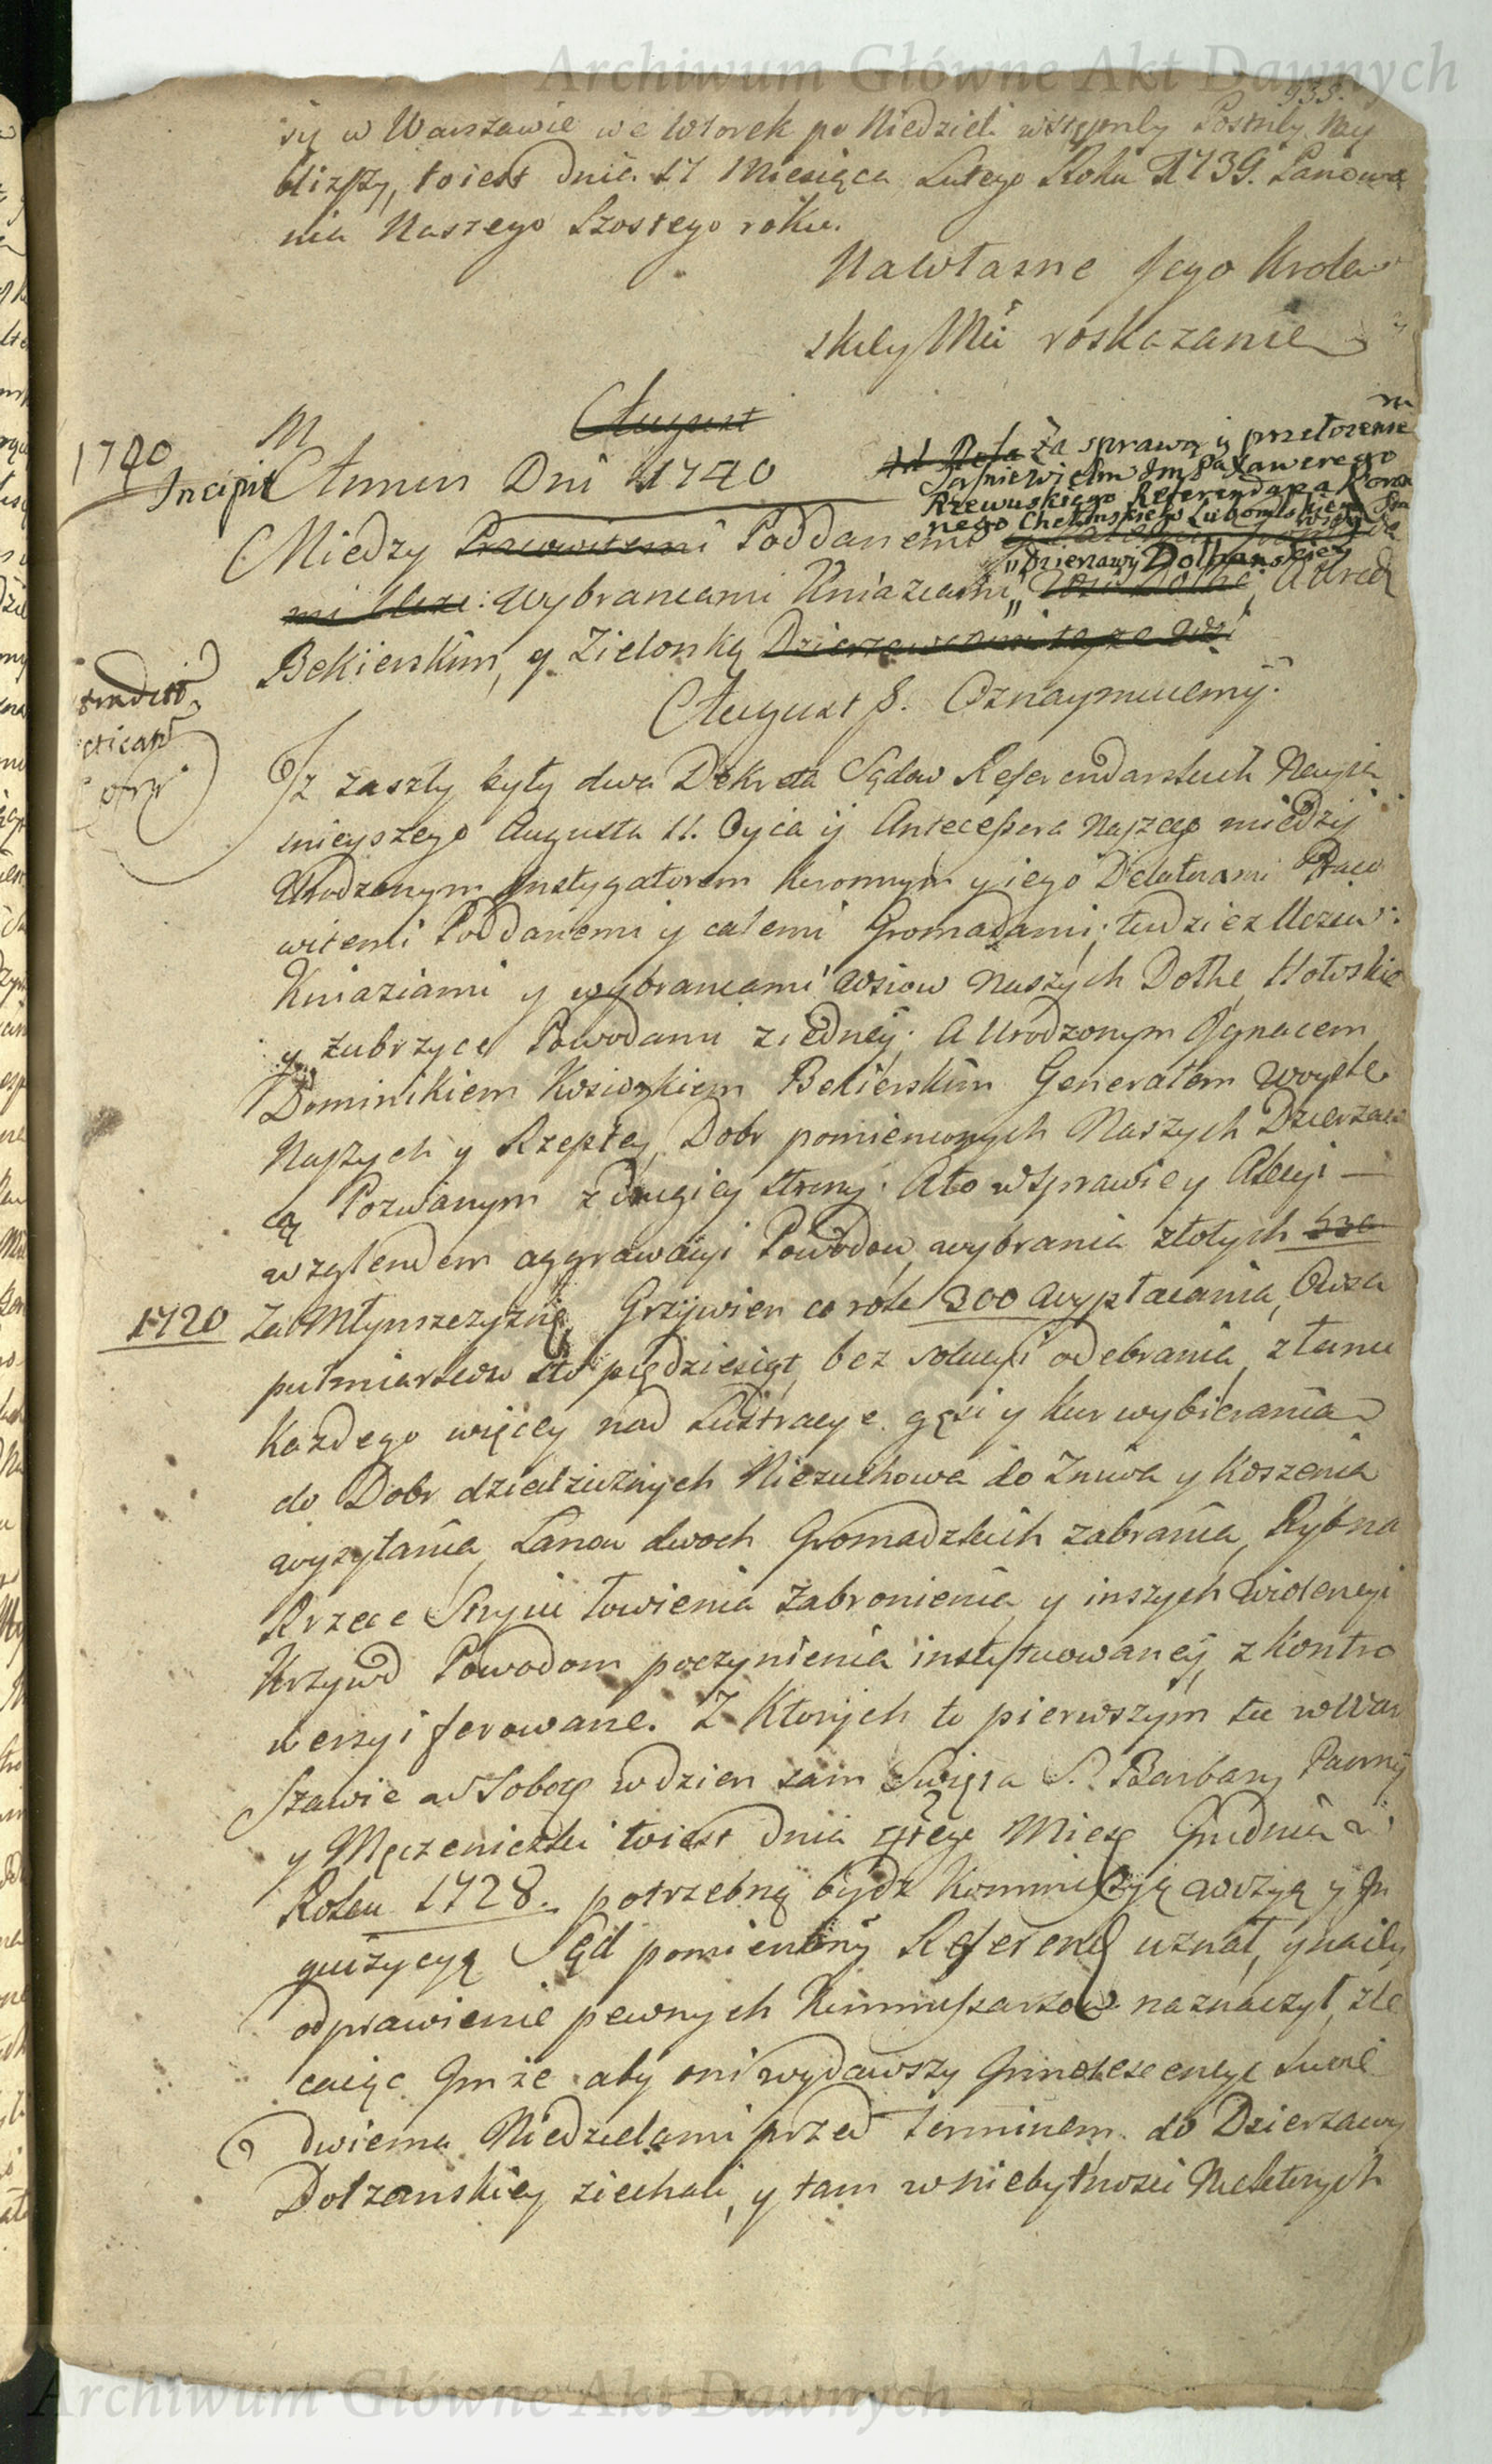 Archiwum Główne Akt Dawnych
938.
się w Warszawie we Wtorek po Niedzieli wstępnly Postnly nay
blizszy, to iest dnia 17 Miesiąca Lutego Roku 1739. Panowa
nia Naszego Szostego roku.
Na własne Jego Krolew
skiey Mci roskazanie
August
1740
Incipit Annus Dni 1740
Ad Rela Za sprawą y przełozenie m
Jasnie Wielm Jm Pa Xawerego
Rzewuskiego Referendarza Koron
nego Chełmskiego Lubomlskiego
Miedzy Pracowitemi Poddanemi
Dzierzawy Dołhanskiey
mi Ucze: Wybrancami Kniaziami, Wsi Dołhe, A Urodz
Bekierskim, y Zielonką Dzierzawcami teyze Wsi
August §. Oznaymuiemy.
Iz zaszły były dwa Dekreta Sądow Referendarskich Nayia
snieyszego Augusta II. Oyca y Antecessora Naszego miedzy
Urodzonym Instygatorem Koronnym y iego Delatorami Praco
witemi Poddanemi y całemi Gromadami; tudziez Uczciw:
Kniaziami y wybrancami Wsiow Naszych Dołhe, Hołobkie
y Zubrzyce Powodami z iedney. A Urodzonym Ignacem
Dominikiem Bekierskim Generałem Woysk
Naszych y Rzeptey, Dobr pomienionych Naszych Dzierzaw
cą Pozwanym z drugiey strony. A to w sprawie y Akcyi —
względem aggrawacyi Powodow, wybrania złotych
1720 Za Młynszczyznę, Grzywien co rok 200 wypłacania, Owsa
pułmiarkow sto pięcdziesiąt, bez solucyi odebrania, z łanu
Kazdego więcey nad Lustracye gęsi y Kur wybierania
do Dobr dziedzicznych Niezuchowa do Zniwa y Koszenia
wysyłania, Łanow dwoch Gromadzkich zabrania, Ryb na
Rzece Stryiu łowienia zabronienia, y inszych widencyi
Krzywd Powodom poczynienia instytuowaney, z kontro
wersyi ferowane. Z Ktorych to pierwszym tu w War
szawie w Sobotę w dzien sam Swięta S. Barbary Panny
y Męczeniczki to iest dnia 4tego Mięs Grudnia
Roku 1728. potrzebną bydz Kommissyą wizyą y In
quizycyą Sąd pomieniony Referend uznał, y na iey
odprawienie pewnych Kommissarzow naznaczył, zle
caiąc Im ze aby oni wydawszy Innotescencye swoie
dwiema Niedzielami przed terminem do Dzierzawy
Dołzanskiey ziechali, y tam w niebytnosci Niektorych
Archiwum Główne Akt Dawnych